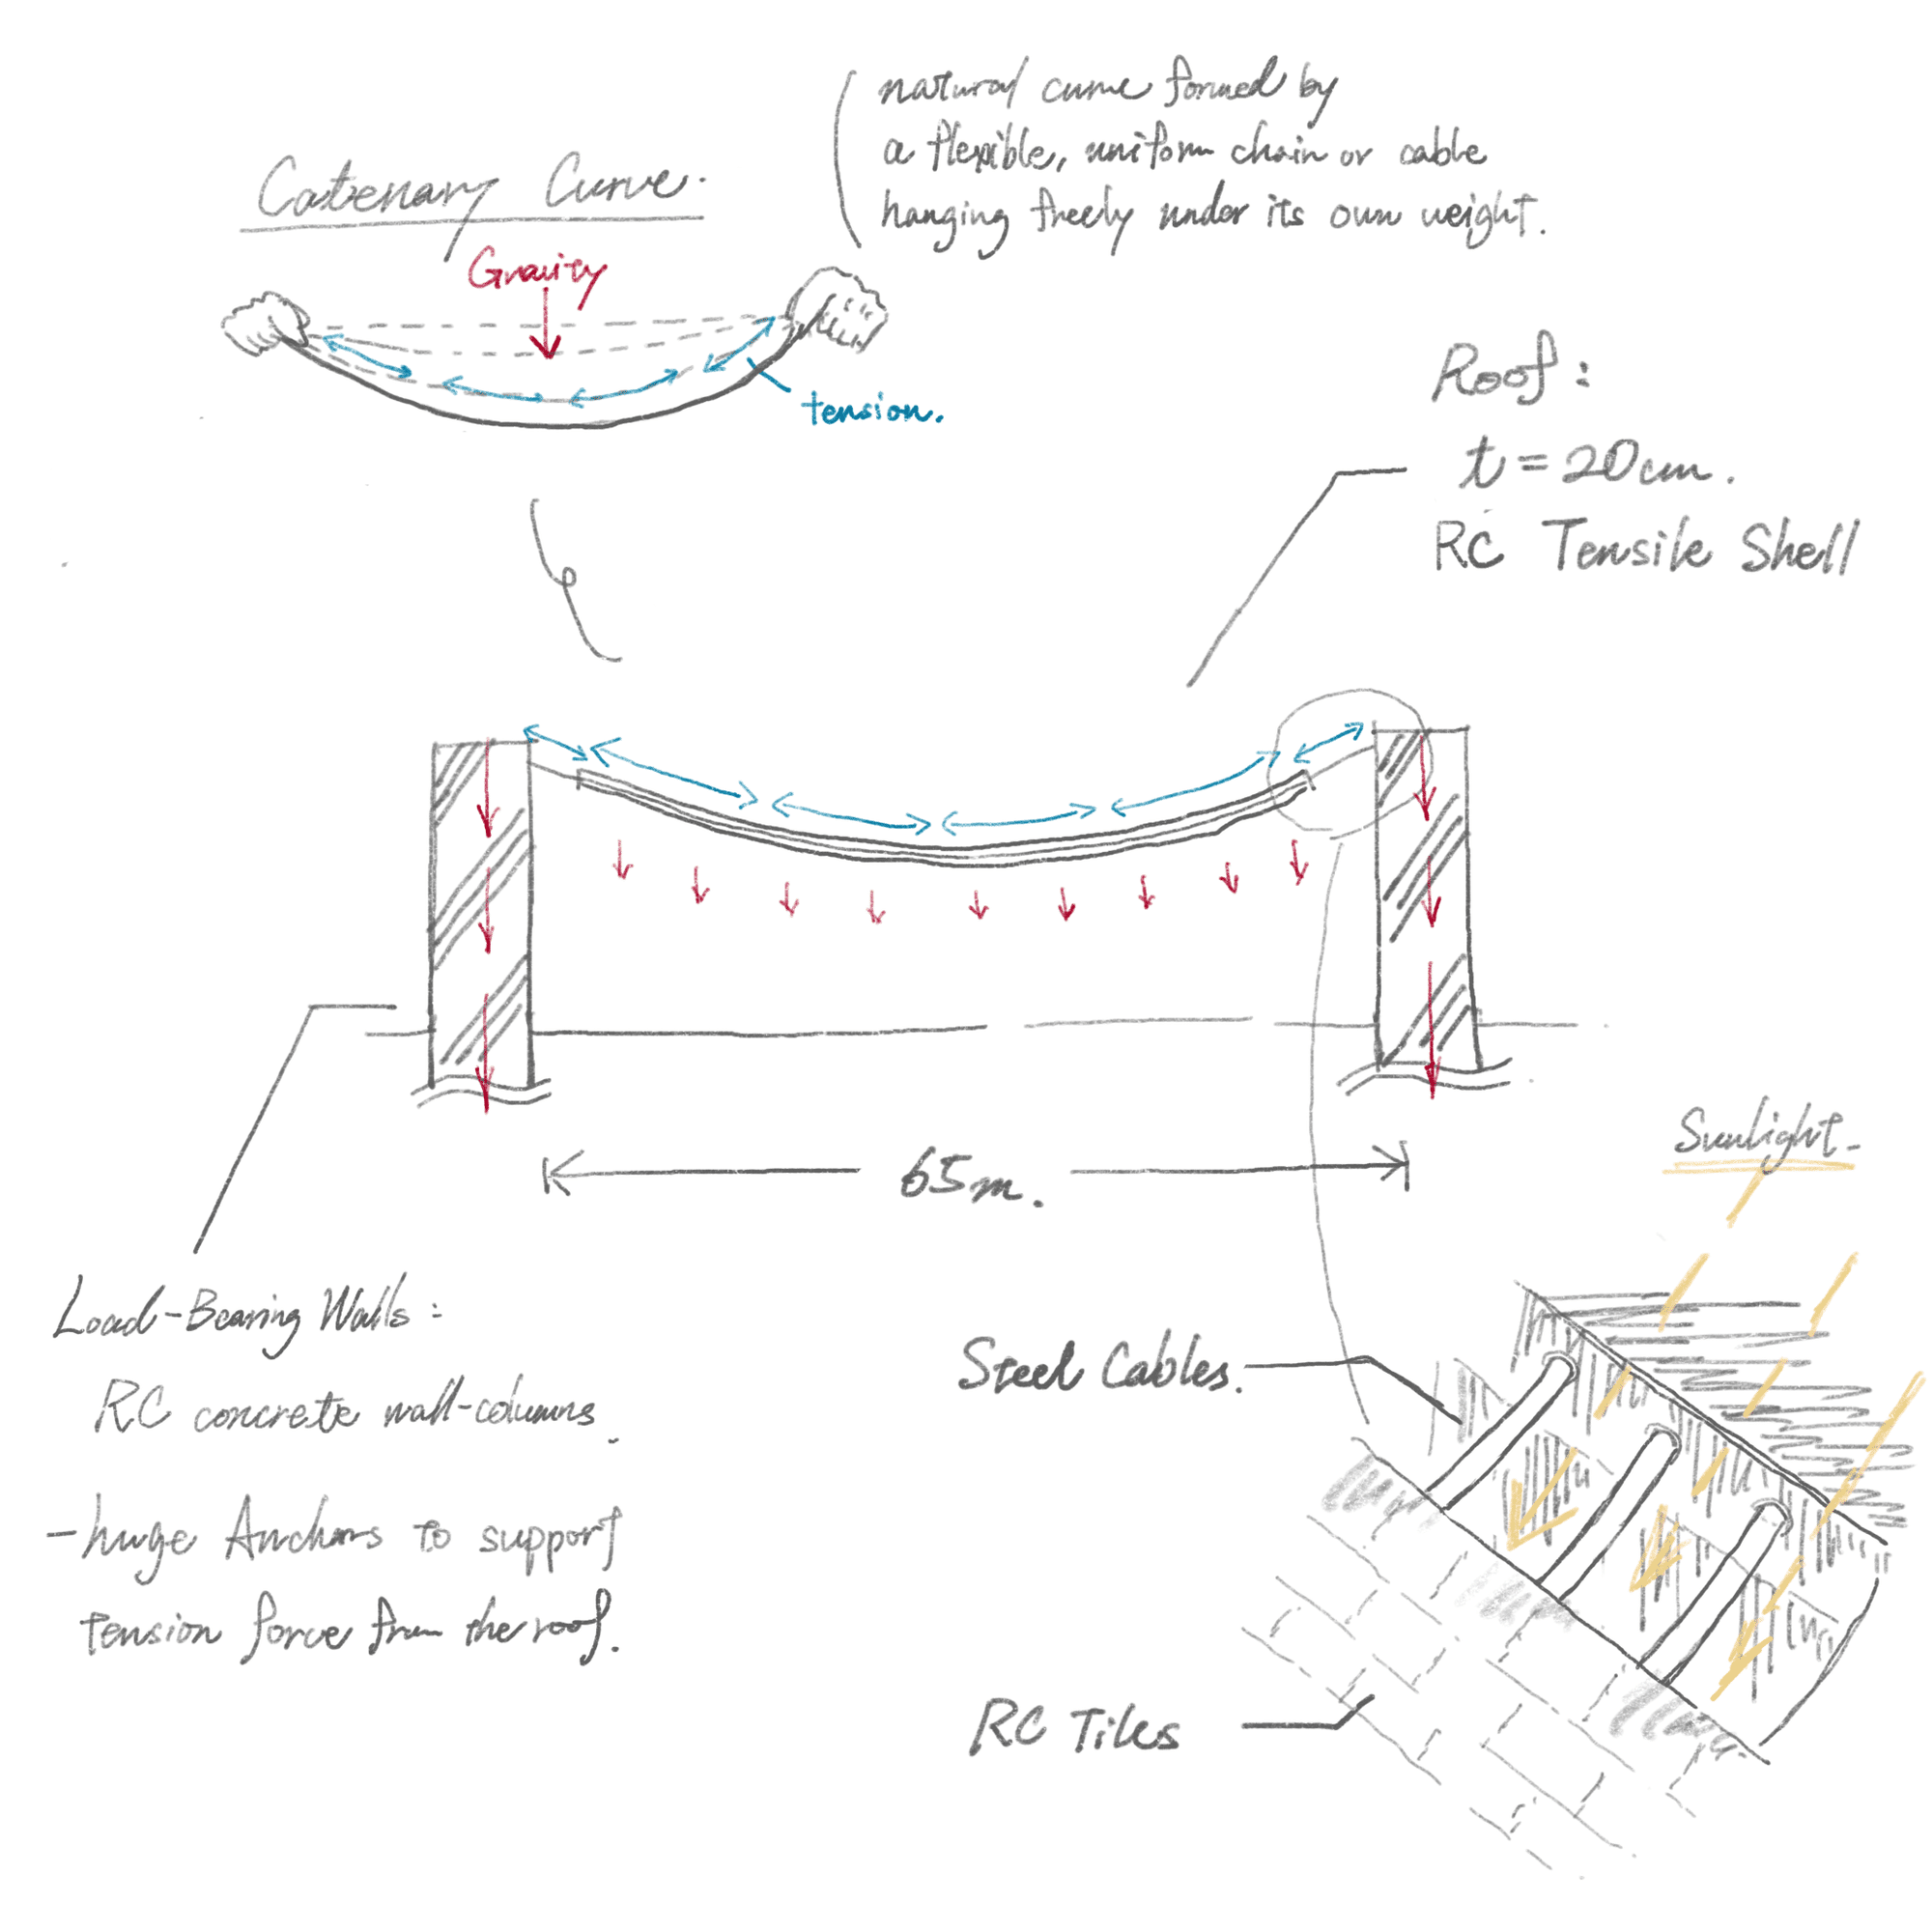 Catenary Curve.
natural curve formed by
a flexible, uniform chain or cable
hanging freely under its own weight.
Gravity
tension.
Roof:
t = 20cm.
RC Tensile Shell
65m.
Load-Bearing Walls:
RC concrete wall-columns.
- huge Anchors to support
tension force from the roof.
Sunlight
Steel Cables.
RC Tiles